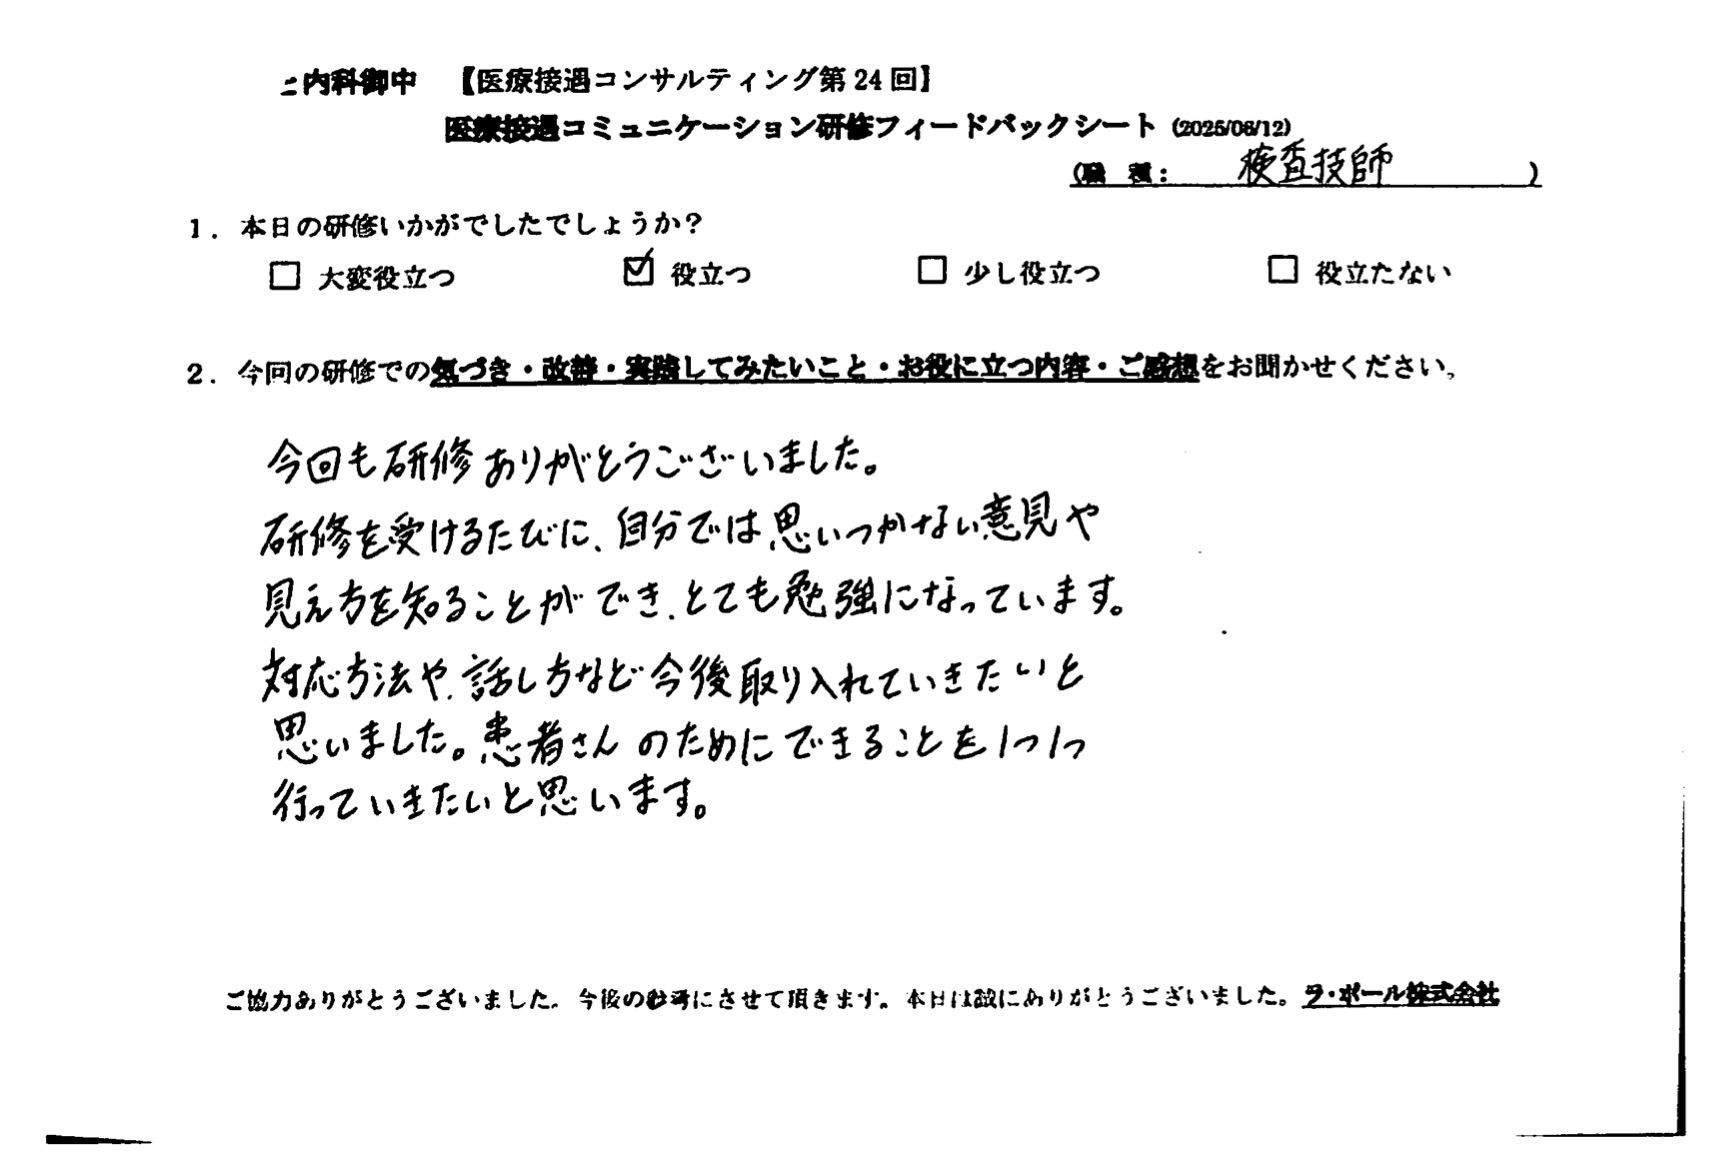 内科御中 【医療接遇コンサルティング第24回】
医療接遇コミュニケーション研修フィードバックシート (2025/08/12)
(職 種: 検査技師 )
1. 本日の研修いかがでしたでしょうか?
□ 大変役立つ ☑ 役立つ □ 少し役立つ □ 役立たない
2. 今回の研修での気づき・改善・実践してみたいこと・お役に立つ内容・ご感想をお聞かせください。
今回も研修ありがとうございました。
研修を受けるたびに、自分では思いつかない意見や
見え方を知ることができ、とても勉強になっています。
対応方法や、話し方など今後取り入れていきたいと
思いました。患者さんのためにできることを1つ1つ
行っていきたいと思います。
ご協力ありがとうございました。今後の参考にさせて頂きます。本日は誠にありがとうございました。ラ・ポール株式会社